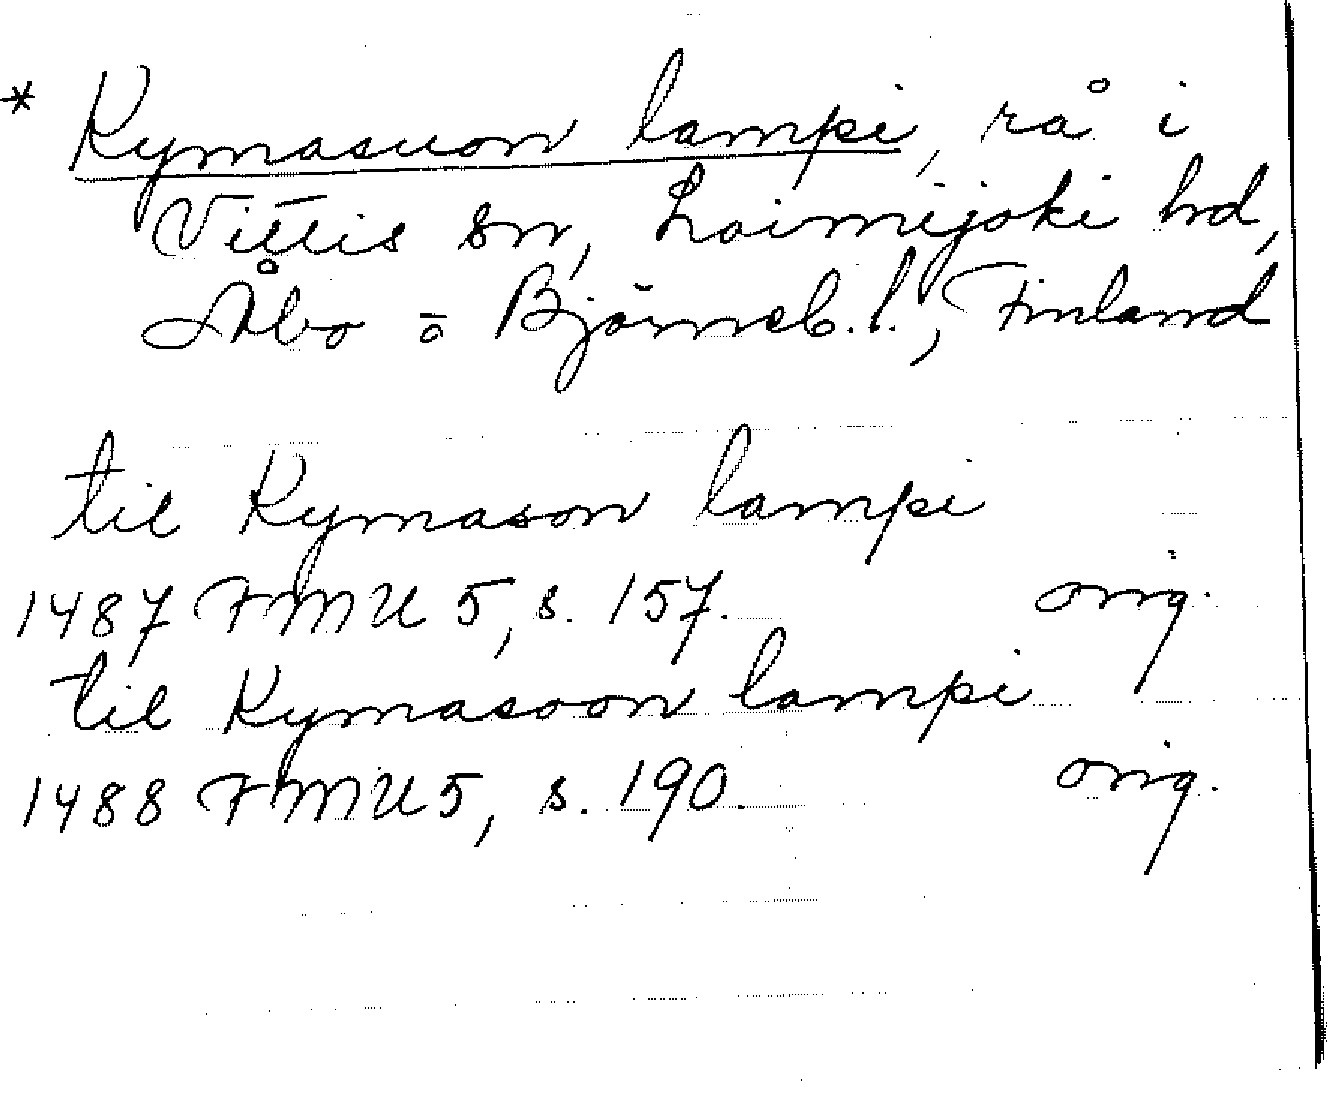 * Kymasuon lampi, rå i
Vittis sn, Loimijoki hd,
Åbo o Björneb. l., Finland
til Kymason lampi
1487 FMU 5, s. 157. orig.
til Kymasoon lampi
1488 FMU 5, s. 190. orig.